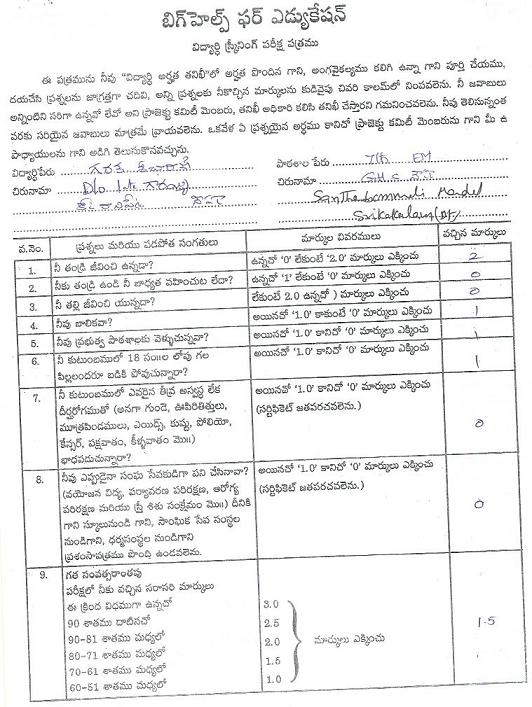 బిగ్‌హెల్ప్ ఫర్ ఎడ్యుకేషన్
విద్యార్థి స్క్రీనింగ్ పరీక్ష పత్రము
ఈ పత్రమును నీవు "విద్యార్థి అర్హత తనిఖీ"లో అర్హత పొందిన గాని, అంగవైకల్యము కలిగి ఉన్నా గాని పూర్తి చేయము,
దయచేసి ప్రశ్నలను జాగ్రత్తగా చదివి, అన్ని ప్రశ్నలకు నీకొచ్చిన మార్కులను కుడివైపు చివరి కాలమ్‌లో నింపవలెను. నీ జవాబులు
అన్నింటిని సరిగా ఉన్నవో లేవో అని ప్రాజెక్టు కమిటీ మెంబరు, తనిఖీ అధికారి కలిసి తనిఖీ చేస్తారని గమనించవలెను. నీవు తెలిసున్నంత
వరకు సరియైన జవాబులు మాత్రమే వ్రాయవలెను. ఒకవేళ ఏ ప్రశ్నయైన అర్థము కానిచో ప్రాజెక్టు కమిటీ మెంబరును గాని మీ ఉ
పాధ్యాయులను గాని అడిగి తెలుసుకొనవచ్చును.
విద్యార్థిపేరు పాఠశాల పేరు 7th EM
చిరునామా D/o Late చిరునామా G.H.S
Santhabommali Mandal
Srikakulam (Dt)
వ.నెం. ప్రశ్నలు మరియు పడపోత సంగతులు మార్కుల వివరములు వచ్చిన మార్కులు
1. నీ తండ్రి జీవించి ఉన్నడా? ఉన్నచో '0' లేకుంటే '2.0' మార్కులు ఎక్కించు 2
2. నీకు తండ్రి ఉండి నీ బాధ్యత వహించుట లేదా? ఉన్నచో '1' లేకుంటే '0' మార్కులు ఎక్కించు 0
3. నీ తల్లి జీవించి యున్నదా? లేకుంటే 2.0 ఉన్నదో ) మార్కులు ఎక్కించు 0
4. నీవు బాలికవా? అయినచో '1.0' కాకుంటే '0' మార్కులు ఎక్కించు 1
5. నీవు ప్రభుత్వ పాఠశాలకు వెళ్ళుచున్నవా? అయినచో '1.0' కానిచో '0' మార్కులు ఎక్కించు 1
6. నీ కుటుంబములో 18 సం॥ల లోపు గల అయినచో '1.0' కానిచో '0' మార్కులు ఎక్కించు 1
పిల్లలందరూ బడికి పోవుచున్నారా?
7. నీ కుటుంబములో ఎవరైన తీవ్ర అస్వస్థ లేక అయినచో '1.0' కానిచో '0' మార్కులు ఎక్కించు
దీర్ఘరోగముతో (అనగా గుండె, ఊపిరితిత్తులు, (సర్టిఫికెట్ జతపరచవలెను.)
మూత్రపిండములు, ఎయిడ్స్, కుష్ఠు, పోలియో,
కేన్సర్, పక్షవాతం, కీళ్ళవాతం మొ॥) 0
భాధపడుచున్నారా?
8. నీవు ఎప్పుడైనా సంఘ సేవకుడిగా పని చేసినావా? అయినచో '1.0' కానిచో '0' మార్కులు ఎక్కించు
(వయోజన విద్య, పర్యావరణ పరిరక్షణ, ఆరోగ్య (సర్టిఫికెట్ జతపరచవలెను.)
పరిరక్షణ మరియు స్త్రీ శిశు సంక్షేమం మొ॥) దీనికి 0
గాని స్కూలునుండి గాని, సాంఘిక సేవ సంస్థల
నుండిగాని, ధర్మసంస్థల నుండిగాని
ప్రశంసాపత్రము పొంది ఉండవలెను.
9. గత సంవత్సరాంతపు
పరీక్షలో నీకు వచ్చిన సరాసరి మార్కులు
ఈ క్రింద విధముగా ఉన్నచో
90 శాతము దాటినచో 3.0
90-81 శాతము మధ్యలో 2.5
80-71 శాతము మధ్యలో 2.0 మార్కులు ఎక్కించు 1.5
70-61 శాతము మధ్యలో 1.5
60-51 శాతము మధ్యలో 1.0